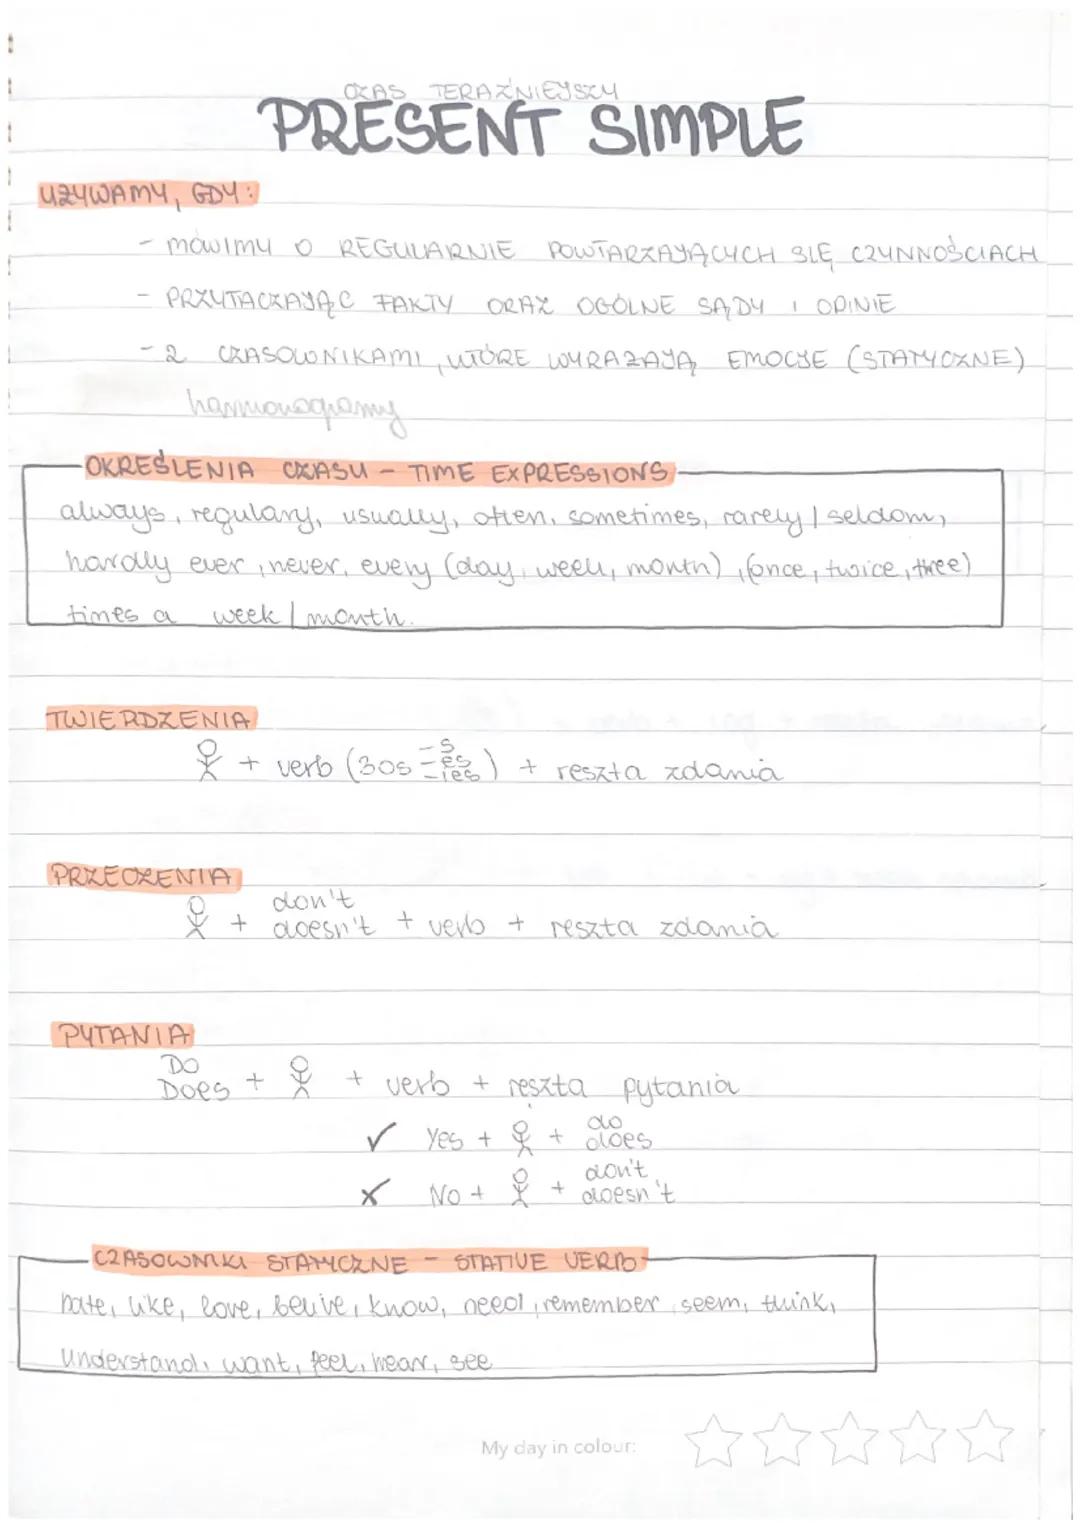 CZAS TERAŹNIEJSZY
PRESENT SIMPLE
UŻYWAMY, GDY:
- MÓWIMY O REGULARNIE POWTARZAJĄCYCH SIĘ CZYNNOŚCIACH
- PRZYTACZAJĄC FAKTY ORAZ OGÓLNE SĄDY I OPINIE
- Z CZASOWNIKAMI, KTÓRE WYRAŻAJĄ EMOCJE (STATYCZNE)
harmonogramy
OKREŚLENIA CZASU - TIME EXPRESSIONS
always, regulary, usually, often, sometimes, rarely / seldom,
hardly ever, never, every (day, week, month), (once, twice, three)
times a week / month.
TWIERDZENIA
+ verb (3os -s -es -ies) + reszta zdania
PRZECZENIA
don't
+ doesn't + verb + reszta zdania
PYTANIA
DO
Does + + verb + reszta pytania
✓ Yes + + do does
x No + + don't doesn't
CZASOWNIKI STATYCZNE - STATIVE VERB
hate, like, love, belive, know, need, remember, seem, think,
Understand, want, feel, hear, see
My day in colour: